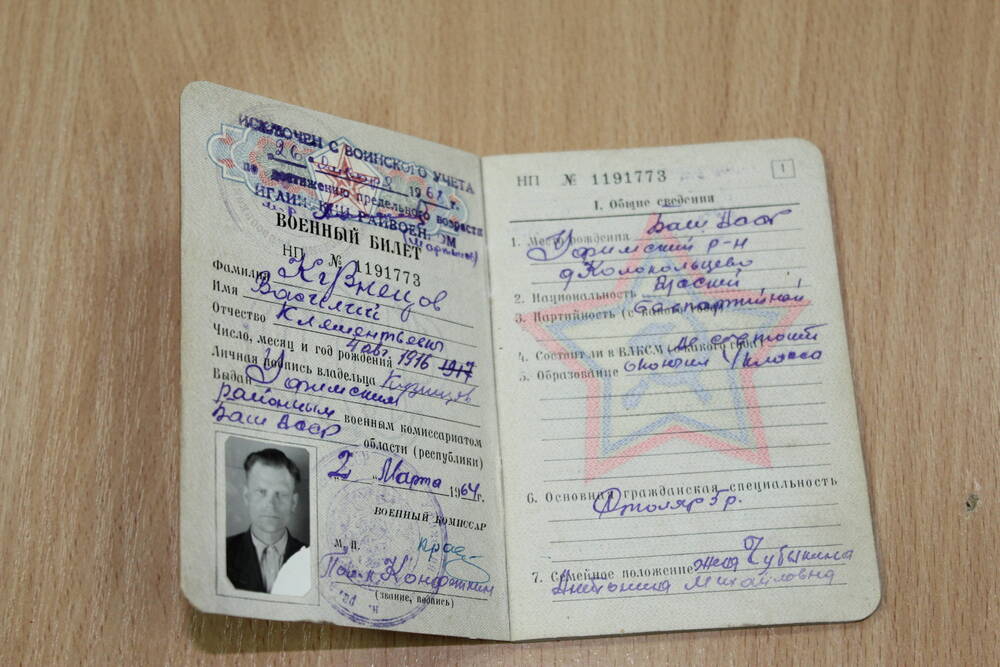 ИСКЛЮЧЕН С ВОИНСКОГО УЧЕТА
26 1968 г.
по достижению предельного возраста
ИГЛИНСКИЙ РАЙВОЕНКОМ
ВОЕННЫЙ БИЛЕТ
НП № 1191773
Фамилия Кузнецов
Имя Василий
Отчество Клементьевич
Число, месяц и год рождения 4 авг. 1916 1917
Личная подпись владельца Кузнецов
Выдан Уфимским
районным военным комиссариатом
Баш АССР области (республики)
"2" Марта 1964 г.
ВОЕННЫЙ КОМИССАР
М. П.
(звание, подпись)
НП № 1191773 1
I. Общие сведения
1. Место рождения Баш АССР
Уфимский р-н
д Колокольцево
2. Национальность Русский
3. Партийность (с какого года) Беспартийный
4. Состоит ли в ВЛКСМ (с какого года) не состоит
5. Образование окончил 4 класса
6. Основная гражданская специальность
Столяр 5 р.
7. Семейное положение жена Чубыкина
Антонина Михайловна